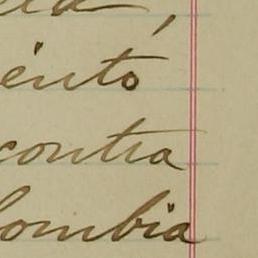 ento
contra
lombia